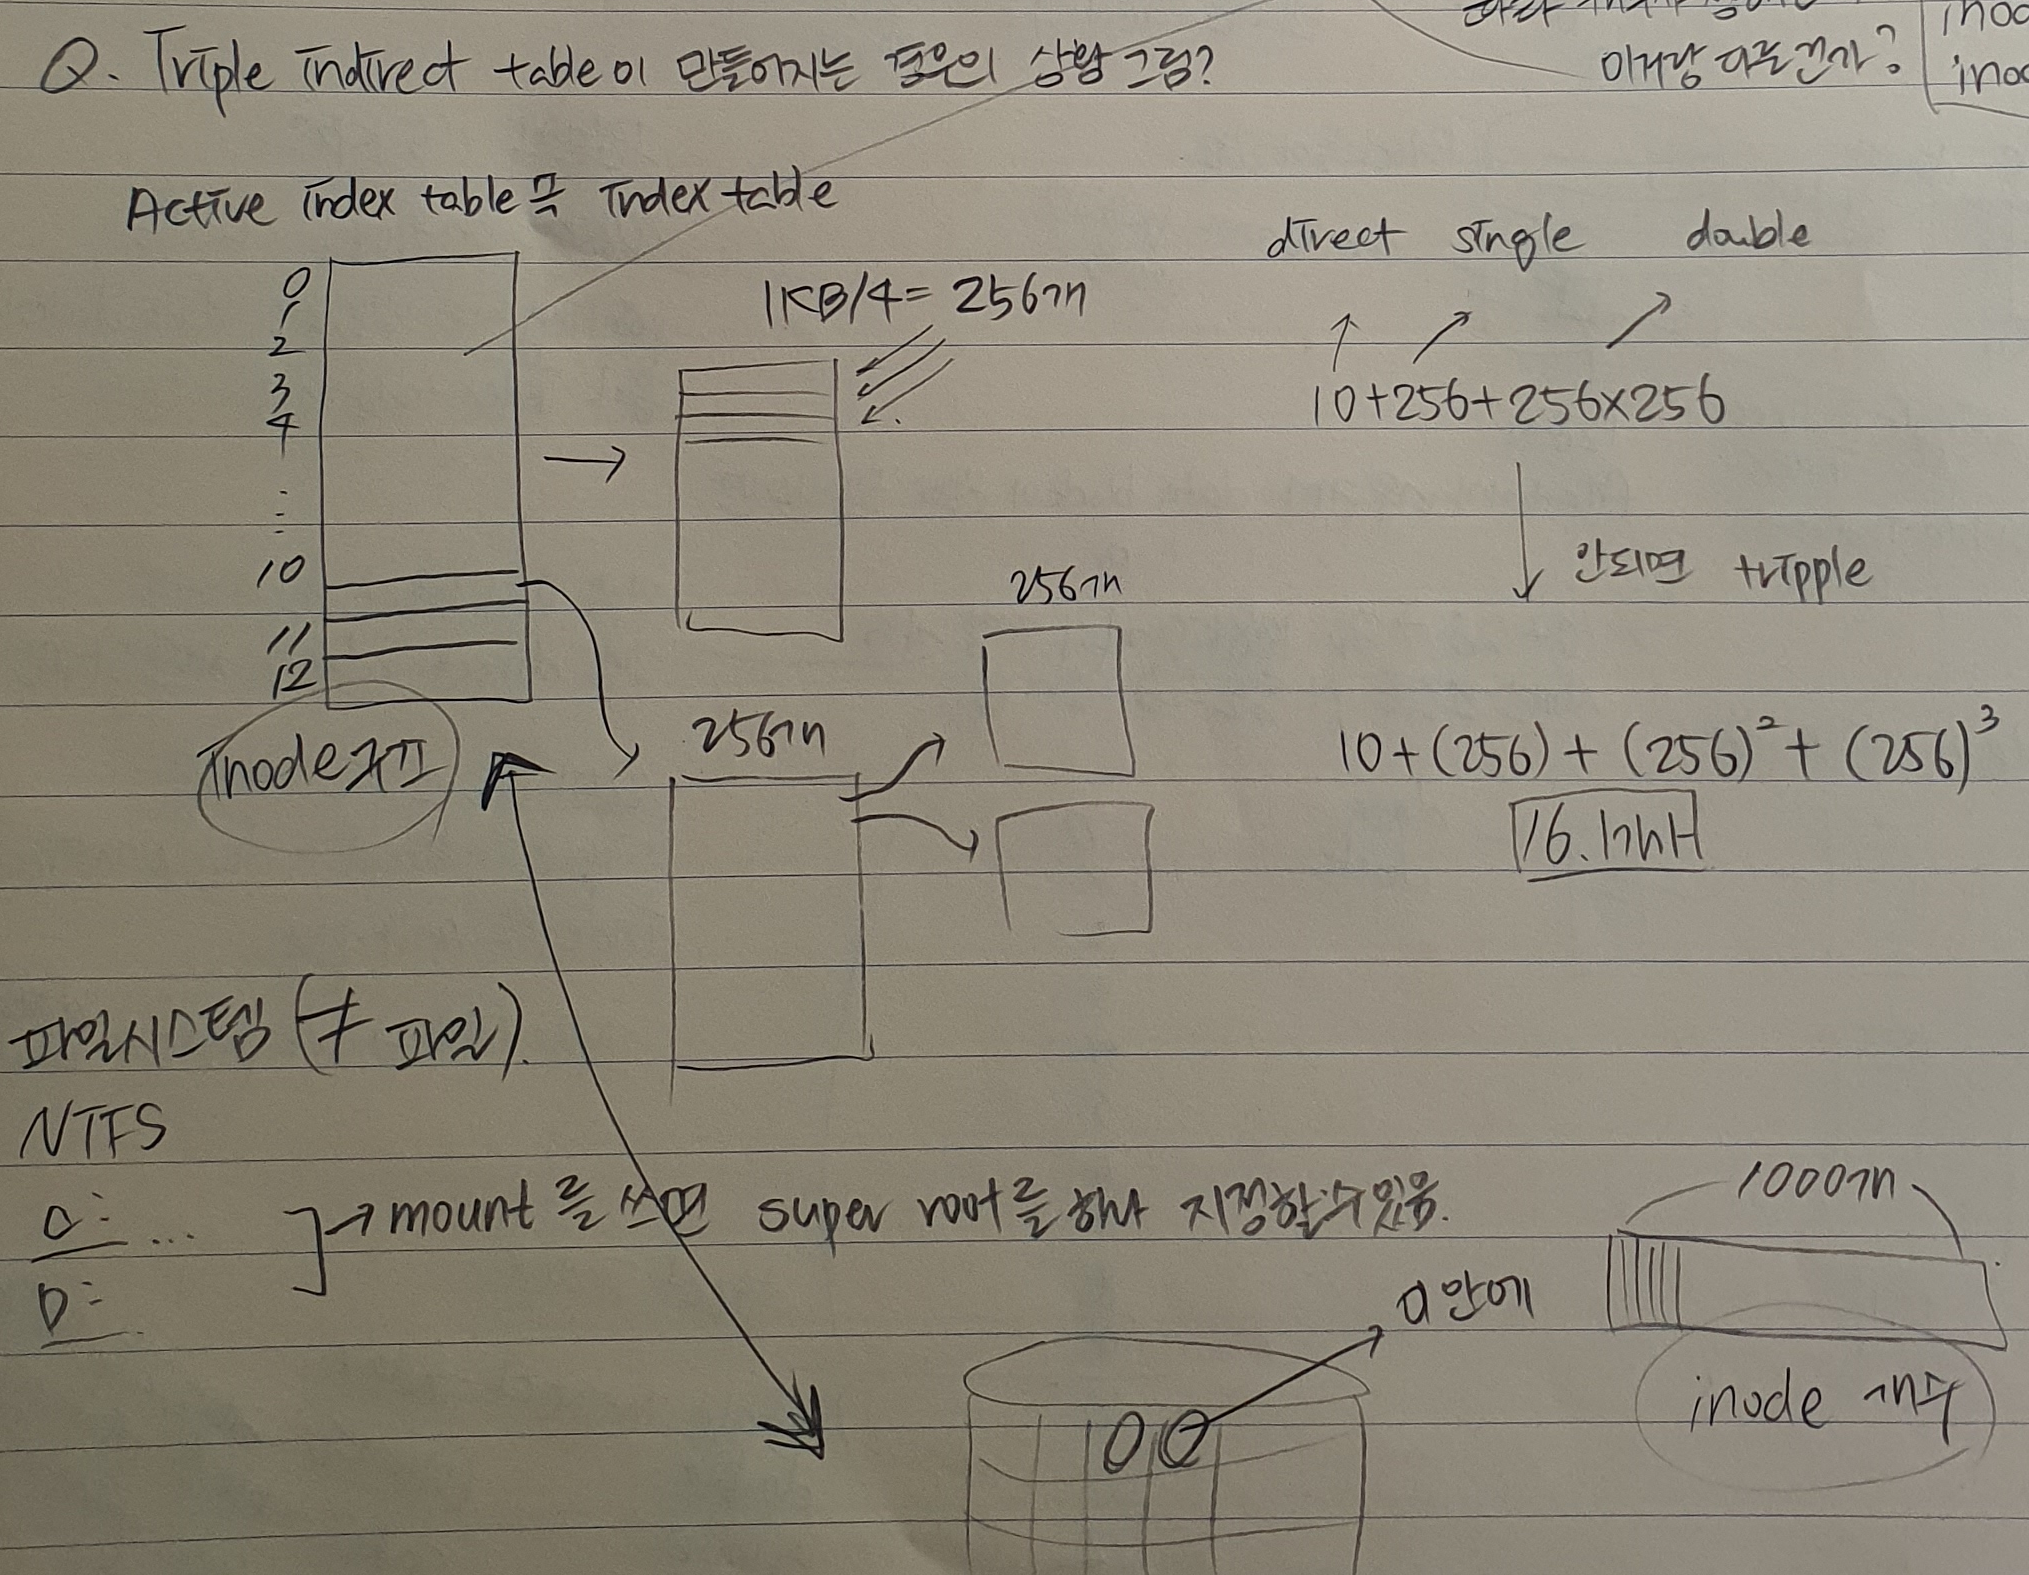 Q. Triple indirect table이 만들어지는 경우의 상황 그림?
이거랑 다른건가?
inod
inod
Active index table 中 Index table
0
1
2
3
4
:
:
10
11
12
inode 구조
1KB/4 = 256개
256개
256개
direct single double
10+256+256×256
안되면 tripple
10+(256)+(256)²+(256)³
파일시스템 (≠ 파일).
NTFS
C: ...
D:
→ mount를 쓰면 super root를 하나 지정할 수 있음.
1000개
이 안에
inode 개수